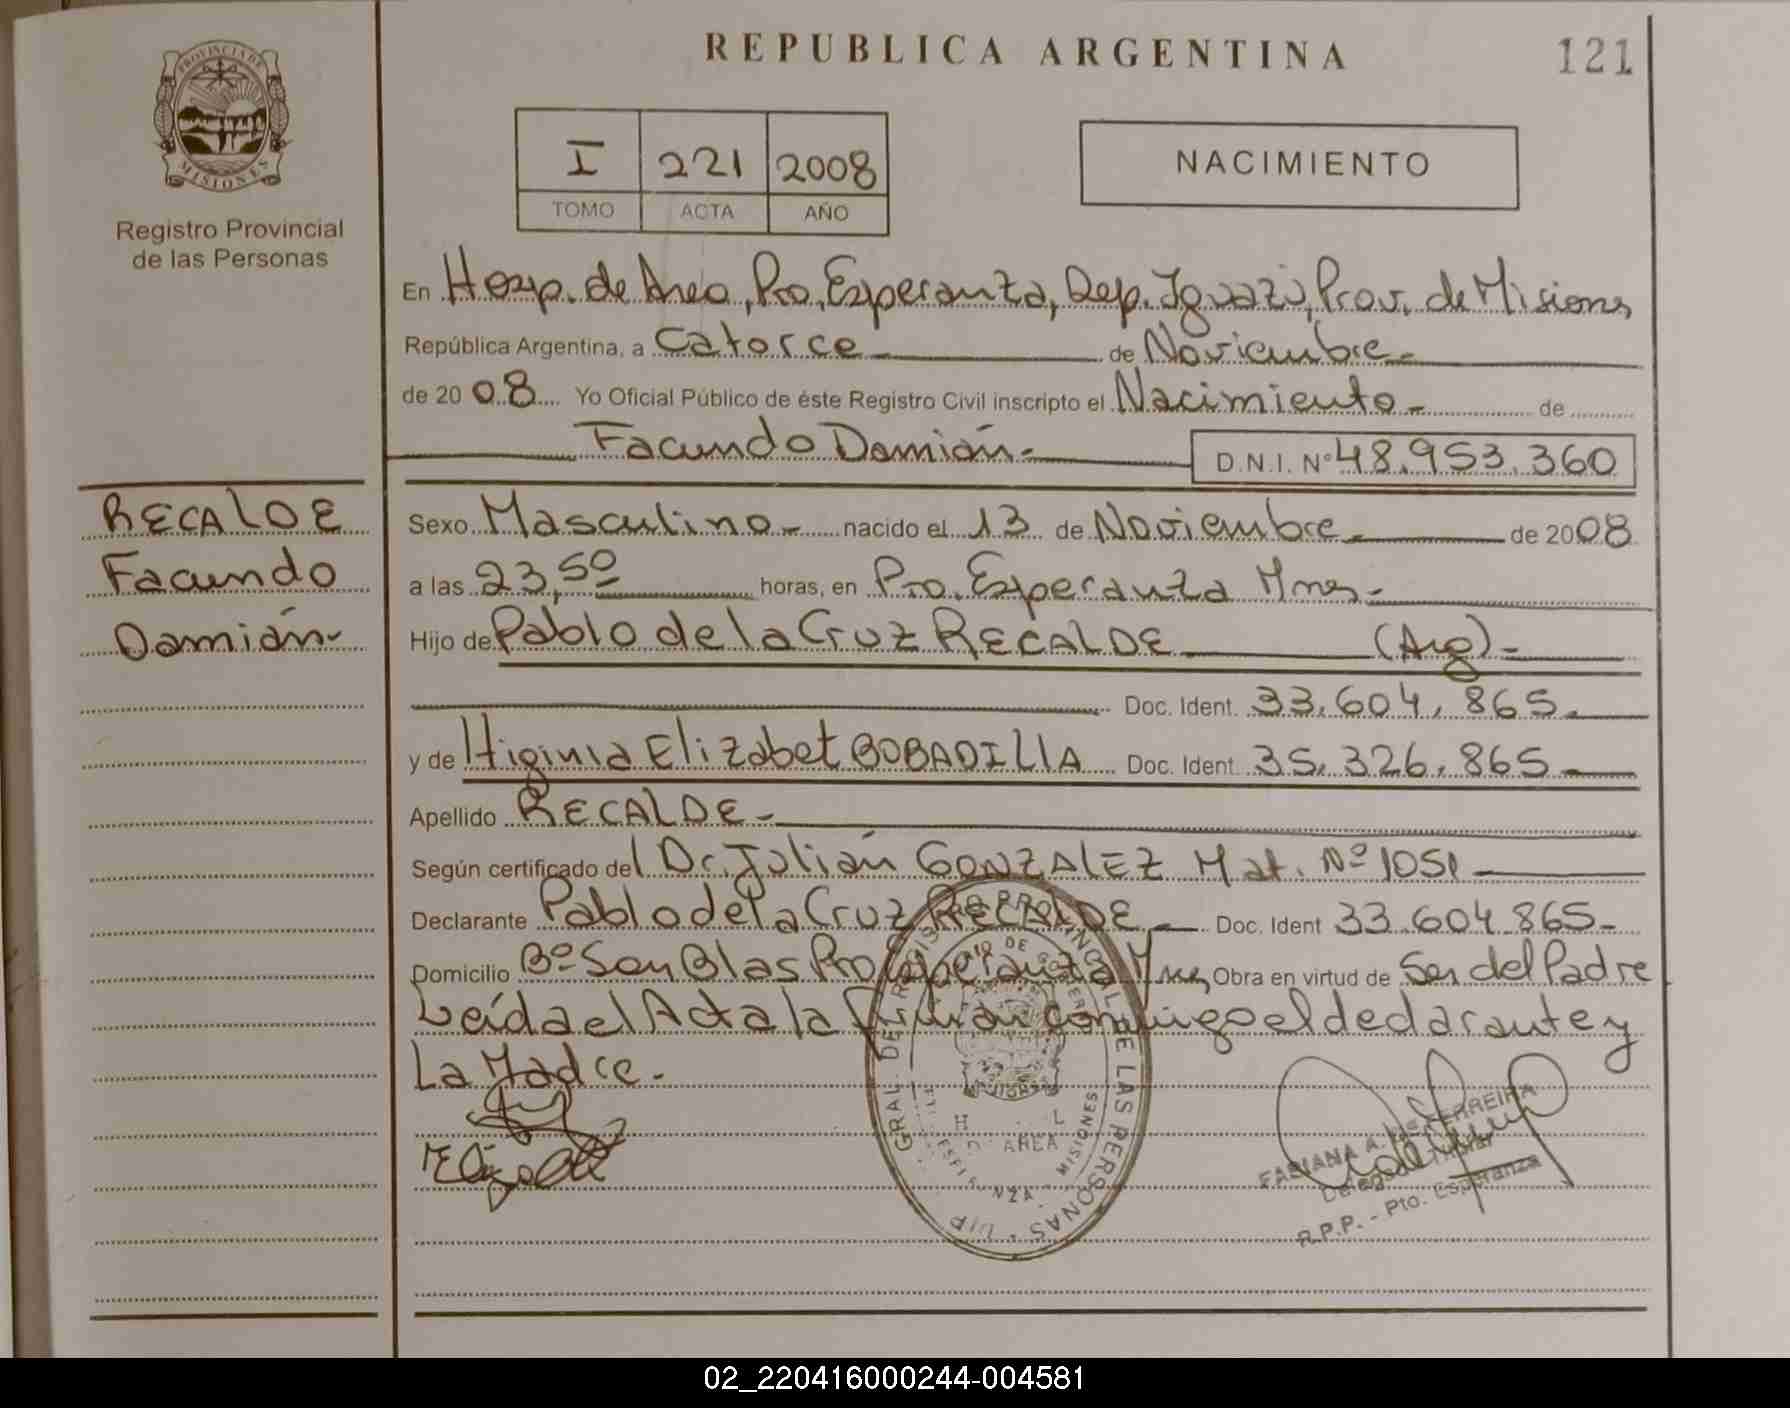 REPUBLICA ARGENTINA
121
PROVINCIA DE
MISIONES
Registro Provincial
de las Personas
I 221 2008
TOMO ACTA AÑO
NACIMIENTO
En Hosp. de Area, Pto. Esperanza, Dep. Iguazú, Prov. de Misiones
República Argentina, a Catorce de Noviembre
de 20 08 Yo Oficial Público de éste Registro Civil inscripto el Nacimiento de
Facundo Damián
D.N.I. Nº 48.953.360
RECALDE
Facundo
Damián
Sexo Masculino nacido el 13 de Noviembre de 2008
a las 23,50 horas, en Pto. Esperanza Mnes
Hijo de Pablo de la Cruz RECALDE (Arg)
Doc. Ident. 33.604.865
y de Higinia Elizabet BOBADILLA Doc. Ident. 35.326.865
Apellido RECALDE
Según certificado del Dr. Julián GONZALEZ Mat. Nº 1051
Declarante Pablo de la Cruz RECALDE Doc. Ident 33.604.865
Domicilio Bº San Blas Pto Esperanza Mnes Obra en virtud de Ser del Padre
Leída el Acta la firman conmigo el declarante y
La Madre.
GRAL. DE LAS PERSONAS
AREA
MISIONES
FABIANA A. FERREIRA
Delegada Titular
R.P.P. - Pto. Esperanza
02_220416000244-004581